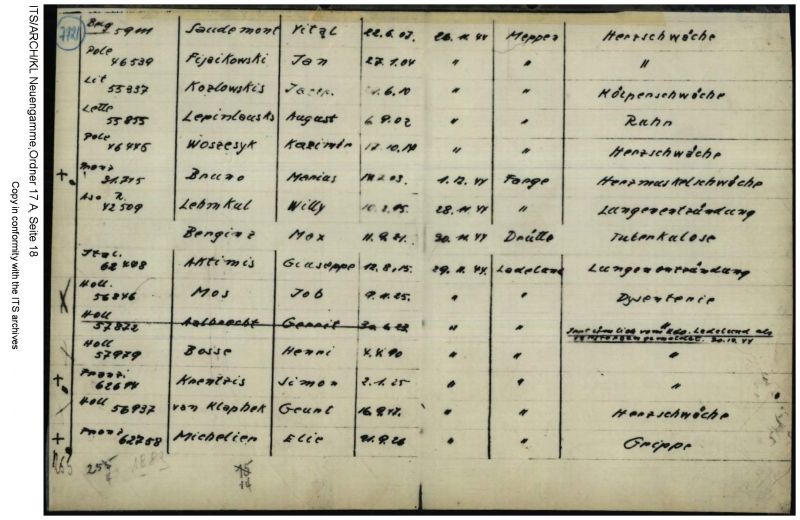 ITS/ARCH/KL Neuengamme,Ordner 17 A, Seite 18
Copy in conformity with the ITS archives
7721
Belg 59111 Saudemont Vital 22.6.07. 26.11.44 Meppen Herzschwäche
Pole 46539 Fijaikowski Jan 27.1.04 " " "
Lit 55337 Kozlowskis .6.10 " " Kölperschwäche
Lette 55855 August 6.9.02 " " Ruhr
Pole 46446 Woszesyk Kazimir " " Herzschwäche
+. Franz 31715 Bruno Marias 1.12.44 Farge Herzmuskelschwäche
Aso R. 42509 Lehmkul Willy 28.11.44 " Lungenentzündung
Benginz Max 11.9.21. 30.11.44 Drütte Tuberkulose
Ital. 62448 Aktimis Giuseppe 12.8.15. 29.11.44. Ladelund Lungenentzündung
Holl. 56846 Mos Job 9.11.25. " " Dysenterie
Holl 57822 Aalbrecht Gerrit " " "
vom Kdo. Ladelund als 30.12.44
Holl 57979 Bosse Henri 4.4.90 " " "
+. Franz. 62694 Krentzis Simon 2.1.25 " " "
Holl 56937 van Klaphek Geurt " " Herzschwäche
+. Franz 62758 Michelien Elie 21.9.26 " " Grippe
255
15
14